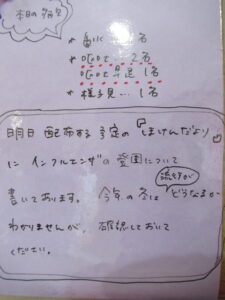 本日の欠席
* 鼻水 … 名
* 咳 … 2名
早退 1名
* 様子見 … 1名
明日 配布する 予定の「ほけんだより」
に インフルエンザの 登園について
書いてあります。 今年の冬は 流行が どうなるか
わかりませんが、 確認しておいて
ください。